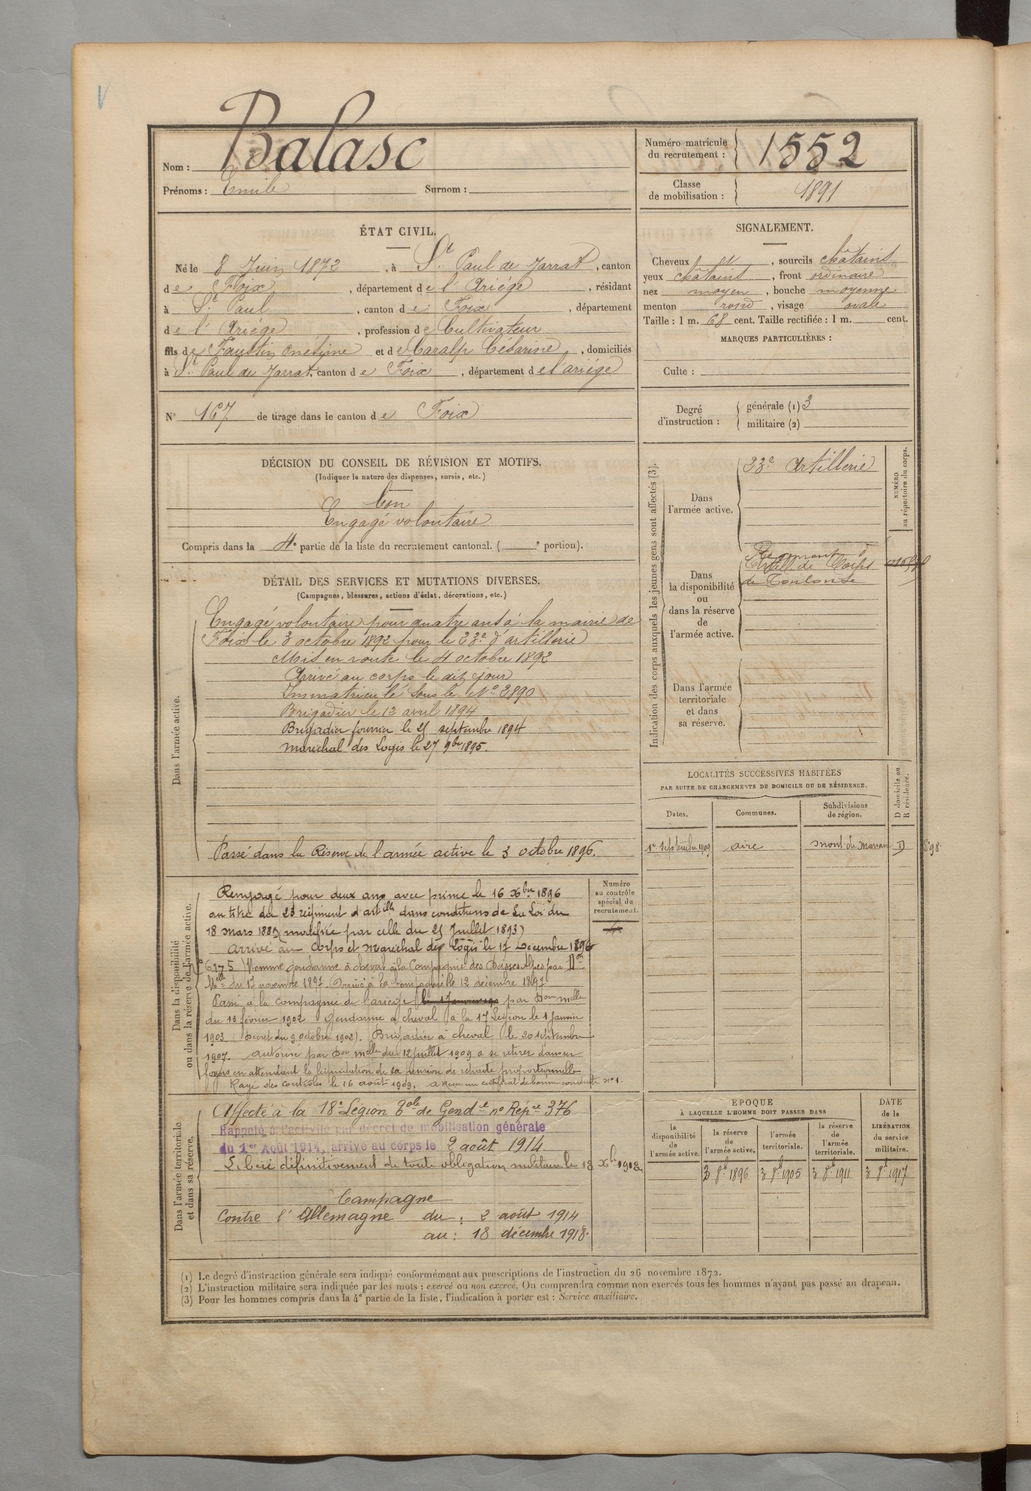 Nom : Balasc
Prénoms : Emile Surnom :
Numéro matricule du recrutement : 1552
Classe de mobilisation : 1891
ÉTAT CIVIL.
Né le 8 Juin 1872, à St Paul de Jarrat, canton
de Foix, département de l'Ariège, résidant
à St Paul, canton de Foix, département
de l'Ariège, profession de Cultivateur
fils de Faustin Onésime et de Caralp Césarine, domiciliés
à St Paul de Jarrat, canton de Foix, département de l'ariège
N° 167 de tirage dans le canton de Foix
SIGNALEMENT.
Cheveux et, sourcils châtains
yeux châtains, front ordinaire
nez moyen, bouche moyenne
menton rond, visage ovale
Taille : 1 m. 68 cent. Taille rectifiée : 1 m. cent.
MARQUES PARTICULIÈRES :
Culte :
Degré d'instruction : générale (1) 3
militaire (2)
DÉCISION DU CONSEIL DE RÉVISION ET MOTIFS.
(Indiquer la nature des dispenses, sursis, etc.)
bon
Engagé volontaire
Compris dans la 4e partie de la liste du recrutement cantonal. ( e portion).
DÉTAIL DES SERVICES ET MUTATIONS DIVERSES.
(Campagnes, blessures, actions d'éclat, décorations, etc.)
Dans l'armée active.
Engagé volontaire pour quatre ans à la mairie de
Foix le 3 octobre 1892 pour le 23e d'artillerie
Mis en route le 4 octobre 1892
Arrivé au corps le dit jour
Immatriculé sous le No 3890
Brigadier le 12 avril 1894
Brigadier fourrier le 25 septembre 1894
Maréchal des Logis le 27 9bre 1895.
Passé dans la Réserve de l'armée active le 3 octobre 1896.
Indication des corps auxquels les jeunes gens sont affectés (3).
Dans l'armée active.
23e Artillerie
NUMÉRO au répertoire du corps.
Dans la disponibilité ou dans la réserve de l'armée active.
Régiment
Artill. de Corps
de Toulouse
Dans l'armée territoriale et dans sa réserve.
LOCALITÉS SUCCESSIVES HABITÉES
PAR SUITE DE CHANGEMENTS DE DOMICILE OU DE RÉSIDENCE.
Dates. Communes. Subdivisions de région. D domicile ou R résidence.
1er Septembre 1909 aire mont-de-Marsan D
Dans la disponibilité ou dans la réserve de l'armée active.
Numéro au contrôle spécial du recrutement.
Rengagé pour deux ans avec prime le 16 Xbre 1896
au titre du 23 régiment d'artille dans conditions de la Loi du
18 mars 1889 modifiée par celle du 25 Juillet 1893)
arrivé au Corps et Maréchal des Logis le 17 Decembre 1896
Nommé gendarme à cheval à la Compagnie des Basses Alpes par Don
Mlle du 1er novembre 1897. Arrivé à la compagnie le 12 décembre 1897.
Passé à la compagnie de l'ariège par Don Mlle
du 13 février 1902 Gendarme à cheval à la 17 Légion le 1 janvier
1903 (Décret du 9 octobre 1902). Brigadier à cheval (le 20 septembre
1907. autorisé par Don Mlle du 12 juillet 1909 à se retirer dans ses
foyers en attendant la liquidation de sa pension de retraite proportionnelle
Rayé des contrôles le 16 août 1909. a reçu un certificat de bonne conduite No 1.
Dans l'armée territoriale et dans sa réserve.
Affecté à la 18e Légion Bole de Gendie no Repre 376
Rappelé à l'activité par décret de mobilisation générale
du 1er Août 1914, arrivé au corps le 2 août 1914
Libéré définitivement de tout obligation militaire le 18 Xbre 1918.
Campagne
Contre l'Allemagne du : 2 août 1914
au : 18 décembre 1918.
EPOQUE
À LAQUELLE L'HOMME DOIT PASSER DANS
la disponibilité de l'armée active. la réserve de l'armée active. l'armée territoriale. la réserve de l'armée territoriale.
DATE de la LIBÉRATION du service militaire.
3 8bre 1896 3 8bre 1905 3 8bre 1911 3 8bre 1917
(1) Le degré d'instruction générale sera indiqué conformément aux prescriptions de l'instruction du 26 novembre 1872.
(2) L'instruction militaire sera indiquée par les mots : exercé ou non exercé. On comprendra comme non exercés tous les hommes n'ayant pas passé au drapeau.
(3) Pour les hommes compris dans la 4e partie de la liste, l'indication à porter est : Service auxiliaire.